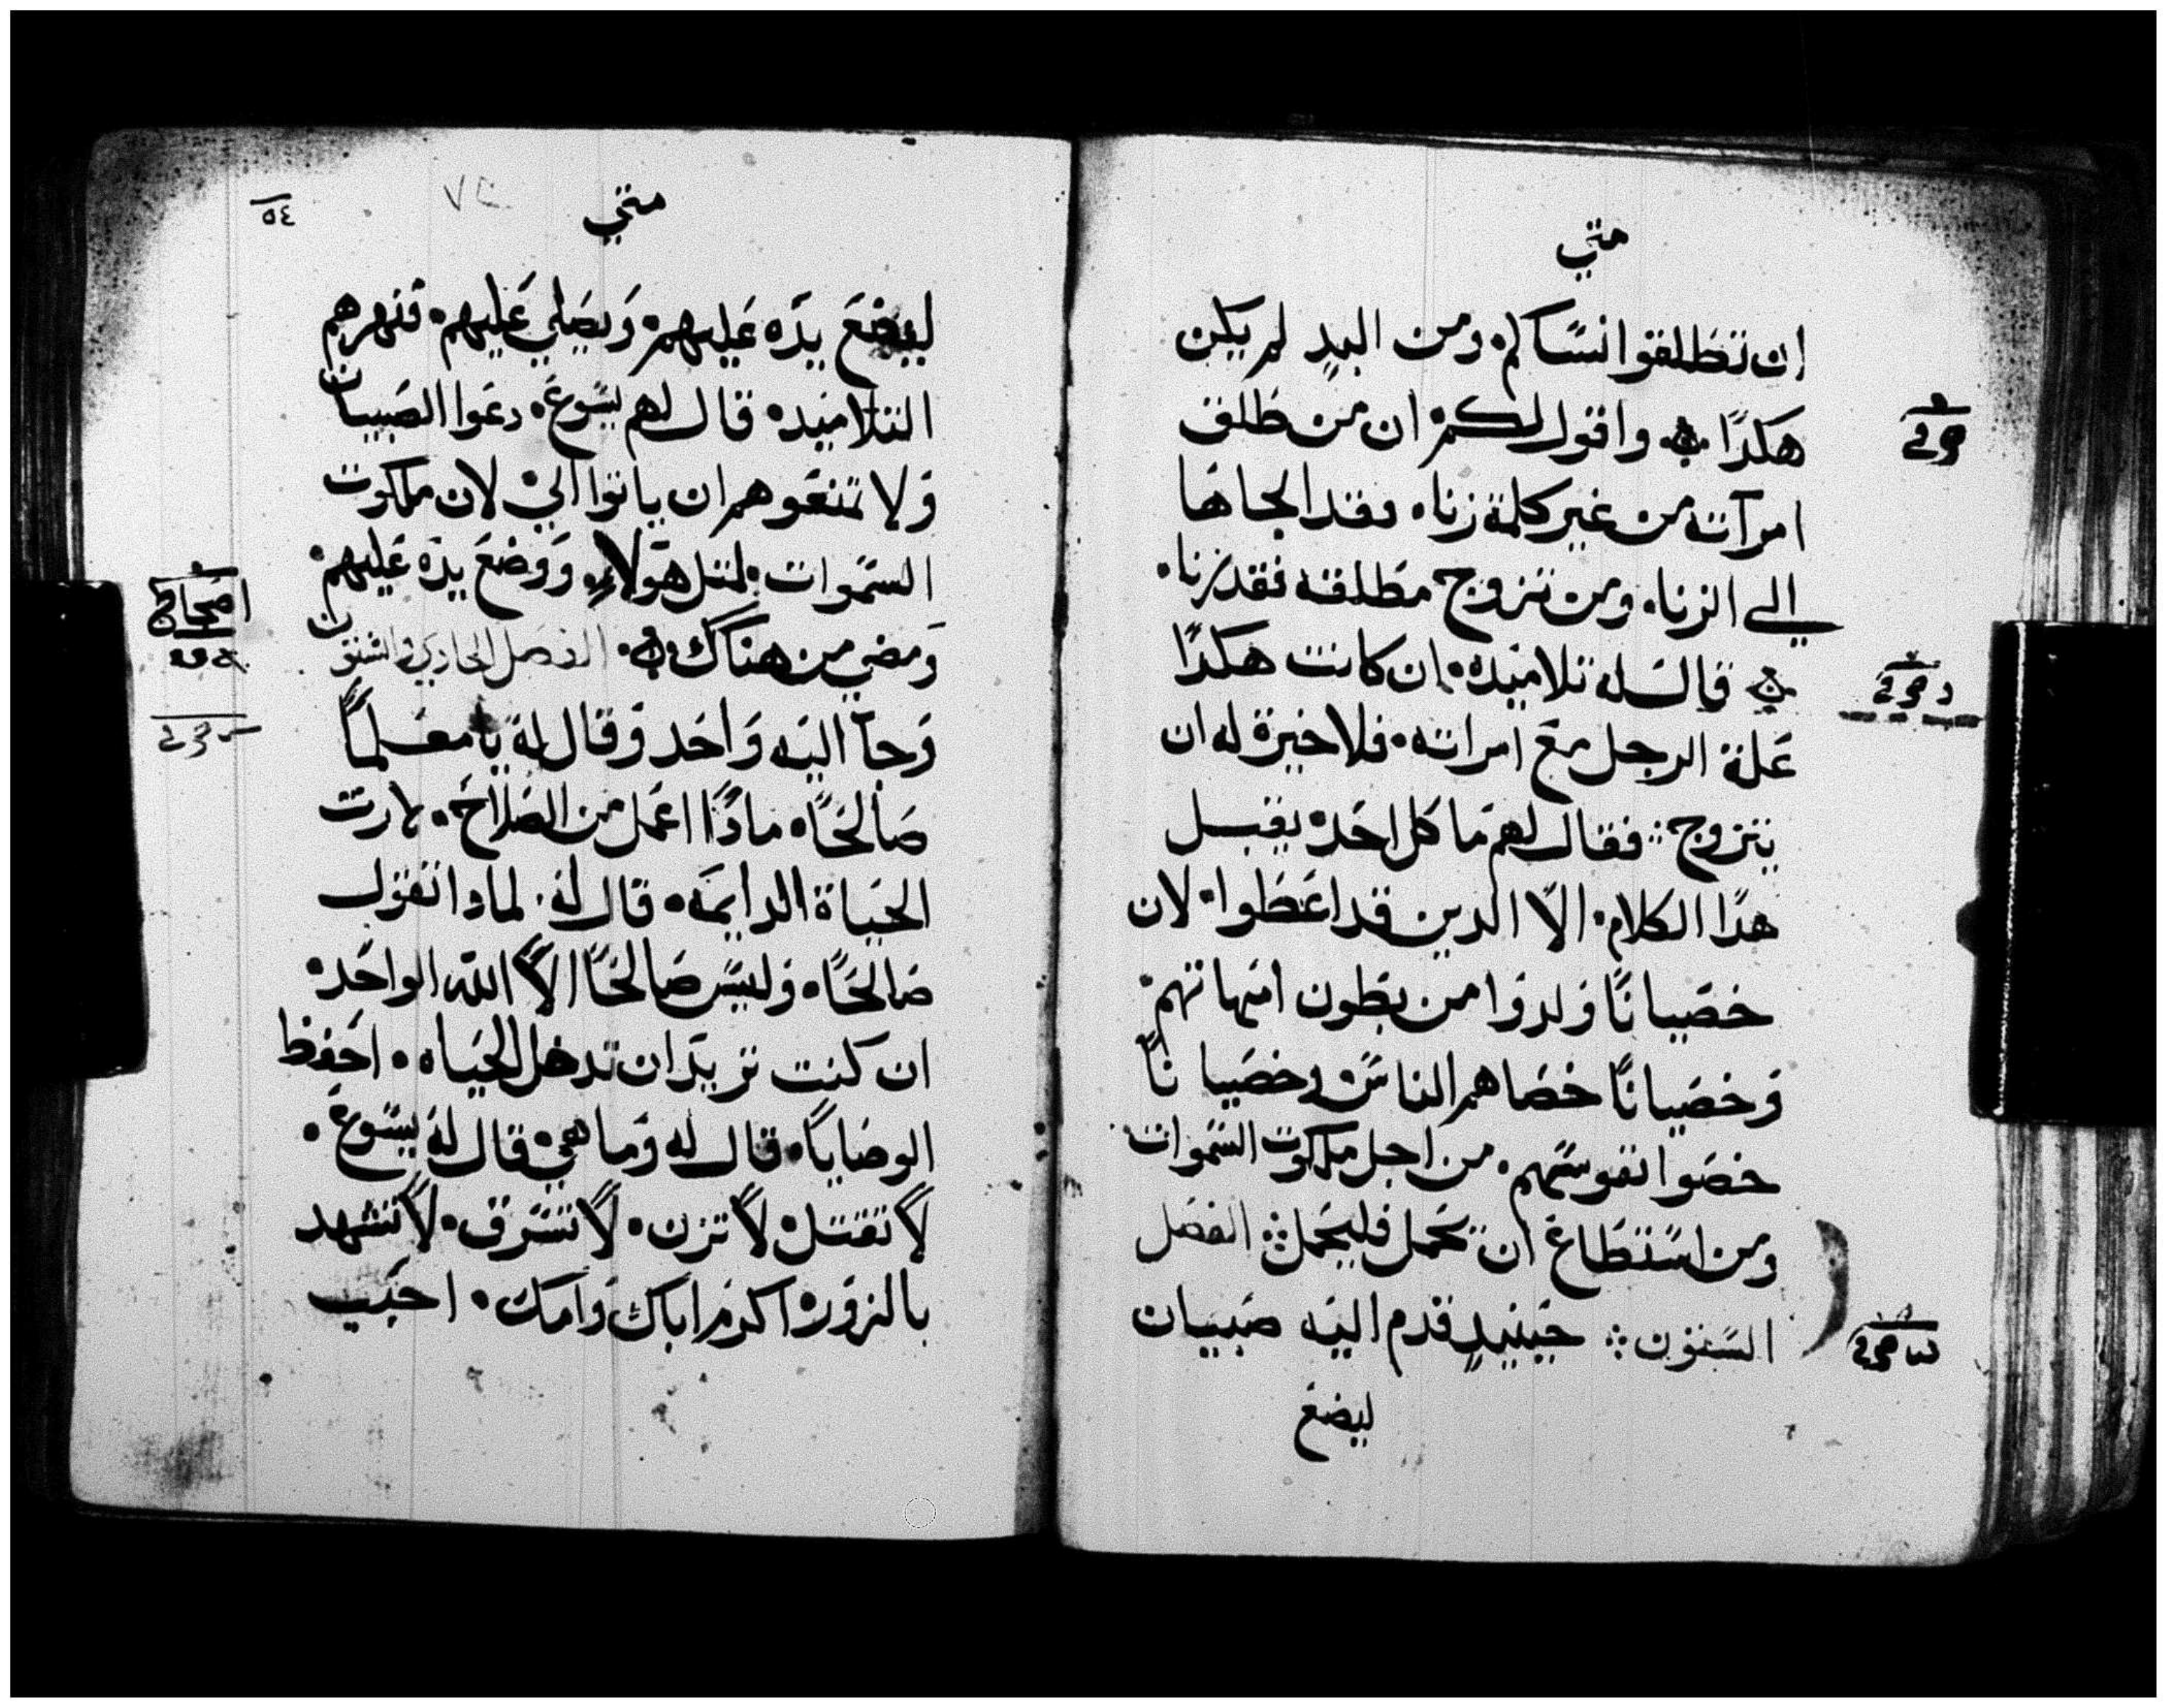 متي
ان تطلقوا نساكم ومن البدِ لم يكن
هكدًا ۞ واقول لكم ان من طلق
امرآته من غير كلمة زناه فقد الجاها
الي الزناه ومن تزوج مطلقه فقد زنا
۞ قال له تلاميده ان كانت هكدًا
علة الرجل مع امراته فلا خيرة له ان
يتزوج ⁘ فقال لهم ما كل احد يقبل
هدا الكلام الّا الدين قد اعطوا لان
خصيانًا ولدوا من بطون امهاتهم
وخصيانًا خصاهم الناس وخصيانًا
خصوا نفوسهم من اجل ملكوت السموات
ومن استطاع ان يحمل فليحمل ⁘ الفصل
الستون ⁘ حينيدٍ قدم اليه صبيان
ليضع
متي
٥٤
ليضع يده عليهم ويصلي عليهم فنهرهم
التلاميد قال لهم يسوع دعوا الصبيان
ولا تمنعوهم ان ياتوا اليّ لان ملكوت
السموات لمتل هولاءِ ووضع يده عليهم
ومضي من هناك ۞ الفصل الحادي والستون
اصحاح
وجآ اليه واحد وقال له يا معلمًا
صالحًا مادًا اعمل من الصلاح لارت
الحياة الدايمه قال له لمادا تقول
صالحًا وليس صالحًا الّا الله الواحد
ان كنت تريد ان تدخل الحياه احفظ
الوصايا قال له وما هي قال له يسوع
لا تقتل لا تزن لا تسرق لا تشهد
بالزور اكرم اباك وامك احبب